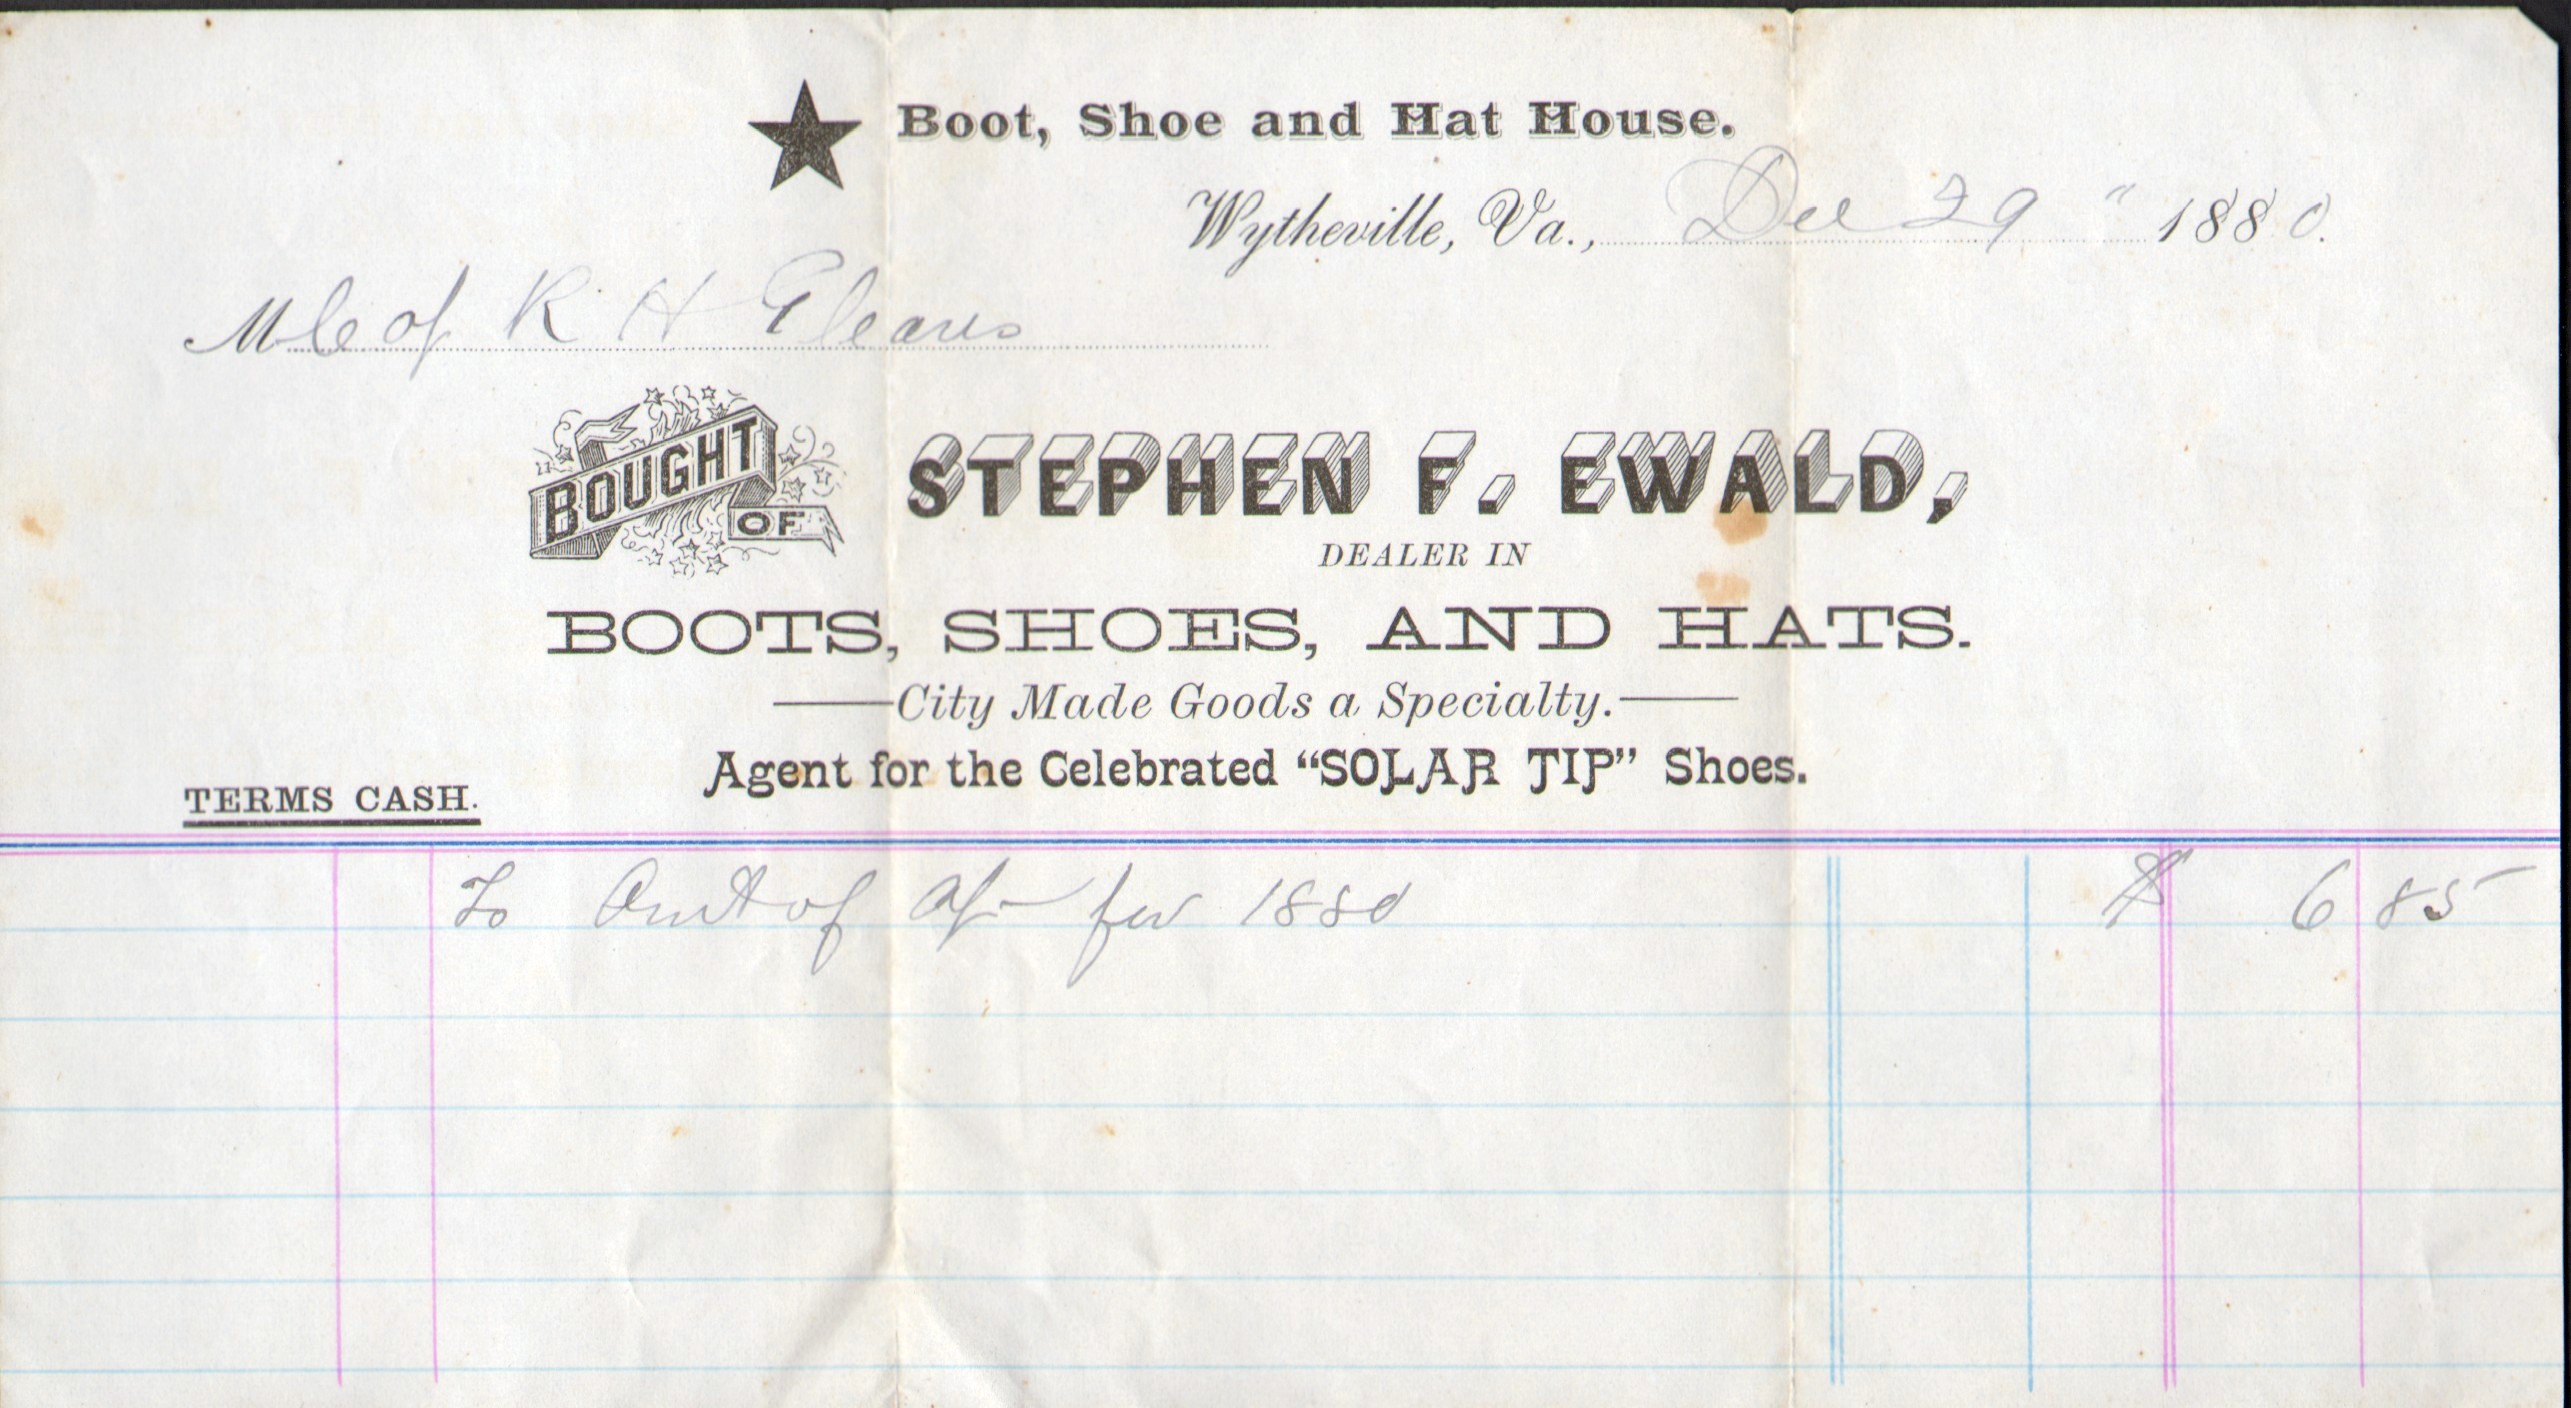 ★ Boot, Shoe and Hat House.
Wytheville, Va., Dec 29 " 1880.
M of R H Gleaves
BOUGHT OF STEPHEN F. EWALD,
DEALER IN
BOOTS, SHOES, AND HATS.
City Made Goods a Specialty.
Agent for the Celebrated “SOLAR TIP” Shoes.
TERMS CASH.
To Amt of a/c for 1880 $ 6 85